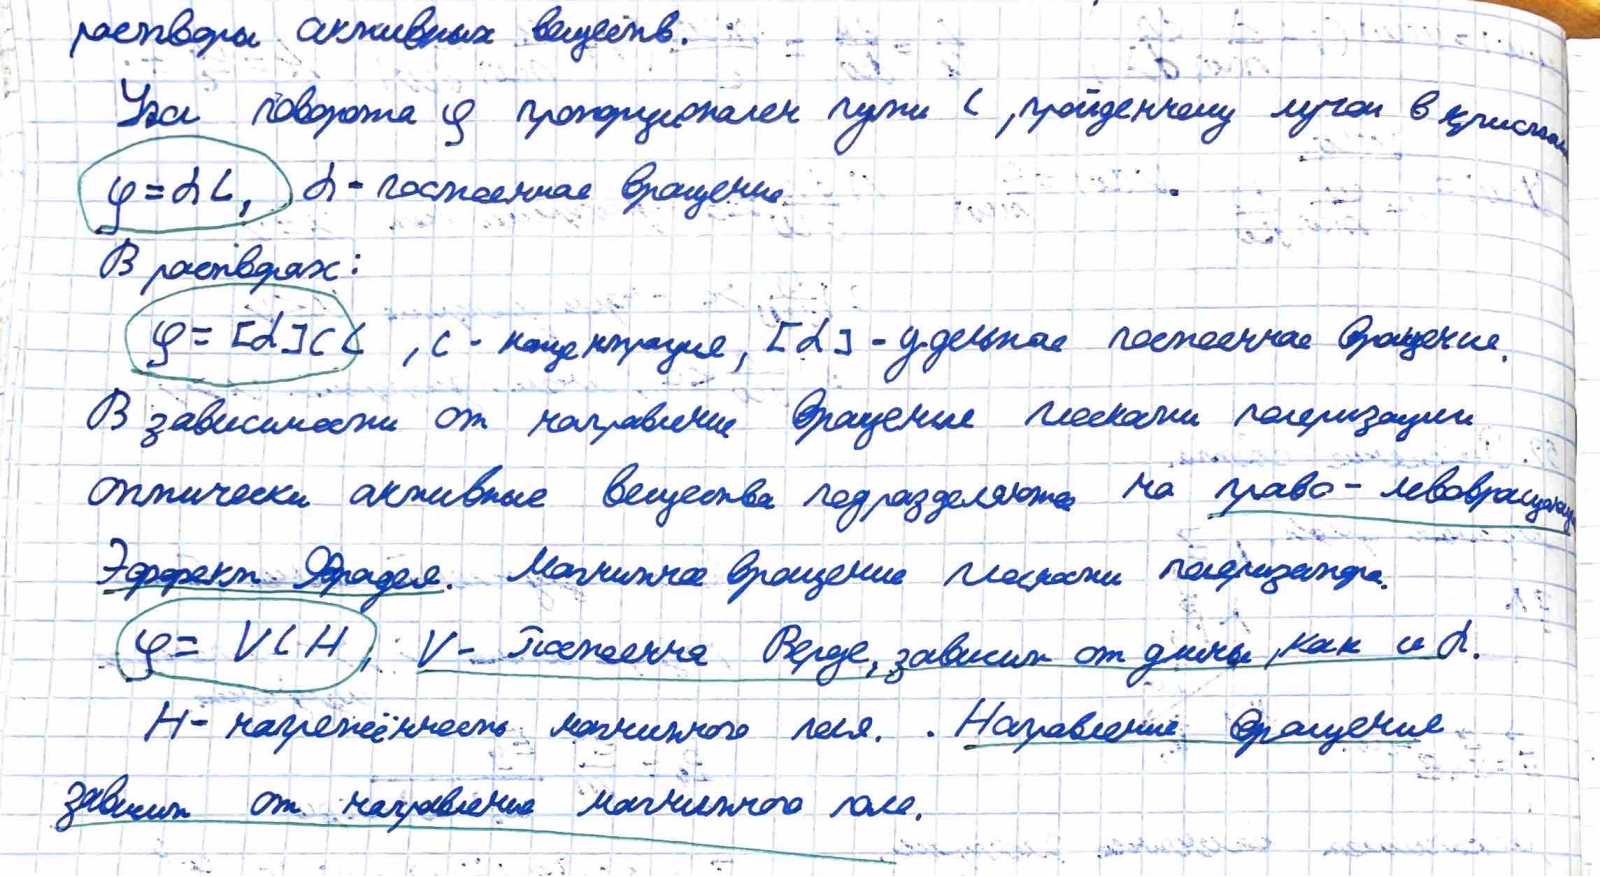 растворы активных веществ.
Угол поворота φ пропорционален пути L, пройденному лучом в кристалле
φ = αL, α - постоянная вращения
В растворах:
φ = [α]CL, C - концентрация, [α] - удельная постоянная вращения.
В зависимости от направления вращения плоскости поляризации
оптически активные вещества подразделяются на право- левовращающие
Эффект Фарадея. Магнитное вращение плоскости поляризатора.
φ = VLH, V - Постоянна Верде, зависит от длины, как и α.
H - напряжённость магнитного поля. . Направление вращения
зависит от направления магнитного поля.